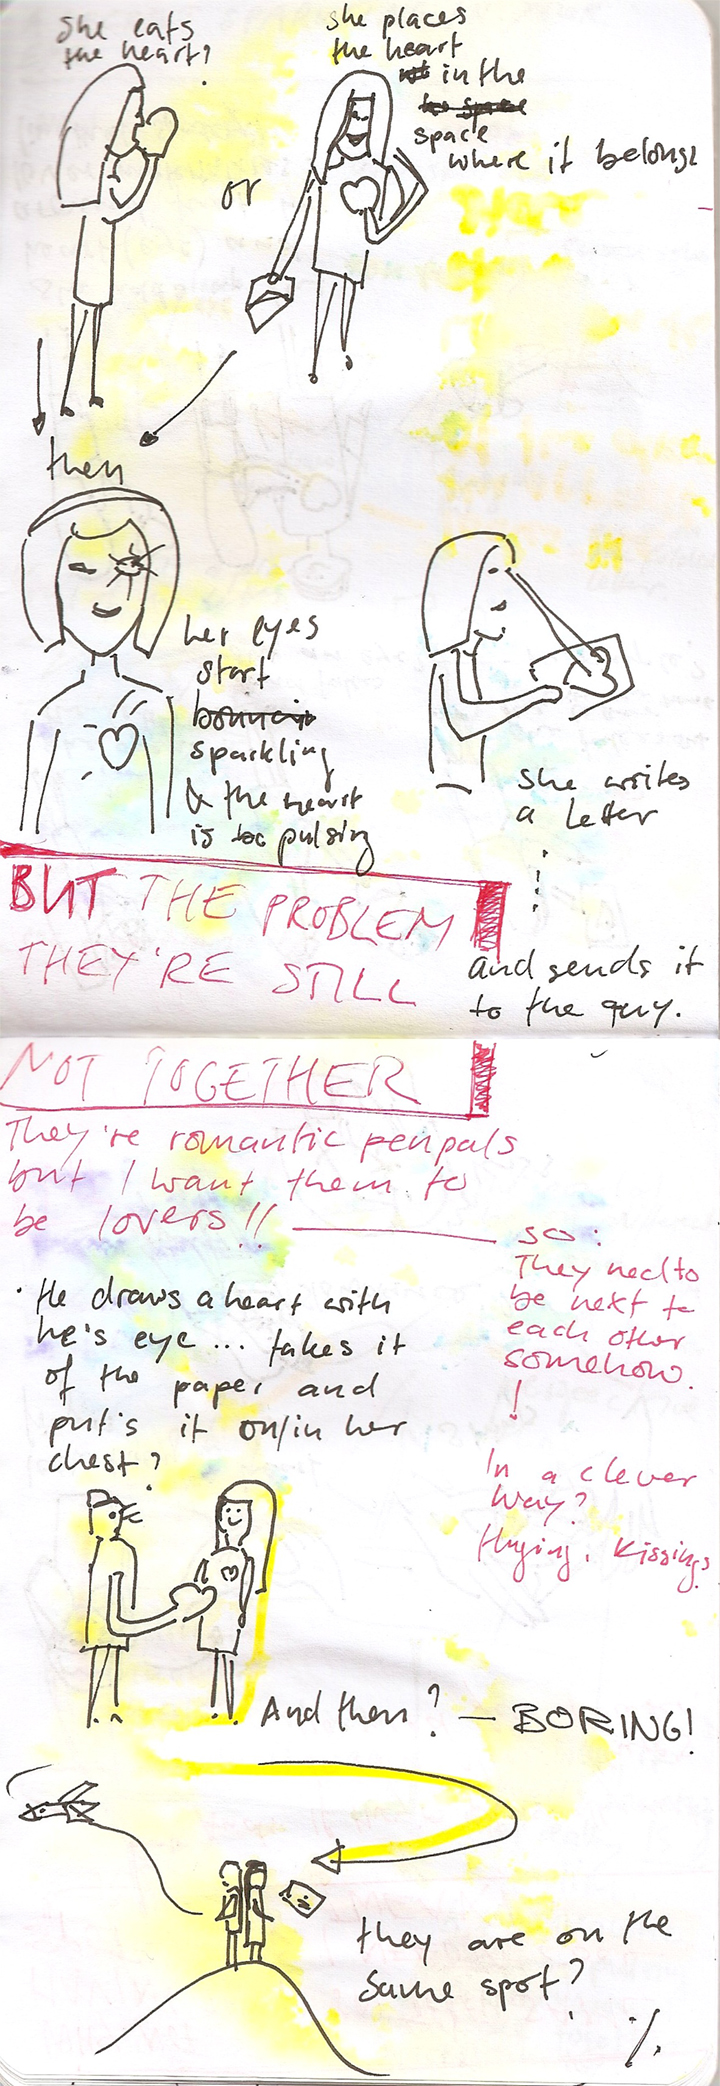 she eats
the heart?
she places
the heart
in the
space
where it belongs
or
then
her eyes
start
sparkling
& the heart
is pulsing
she writes
a letter
and sends it
to the guy.
BUT THE PROBLEM
THEY'RE STILL
NOT TOGETHER
They're romantic penpals
but I want them to
be lovers!!
so:
They need to
be next to
each other
somehow.
!
In a clever
way?
Huging, Kissing
• He draws a heart with
he's eye... takes it
of the paper and
put's it on/in her
chest?
And then? — BORING!
they are on the
same spot?